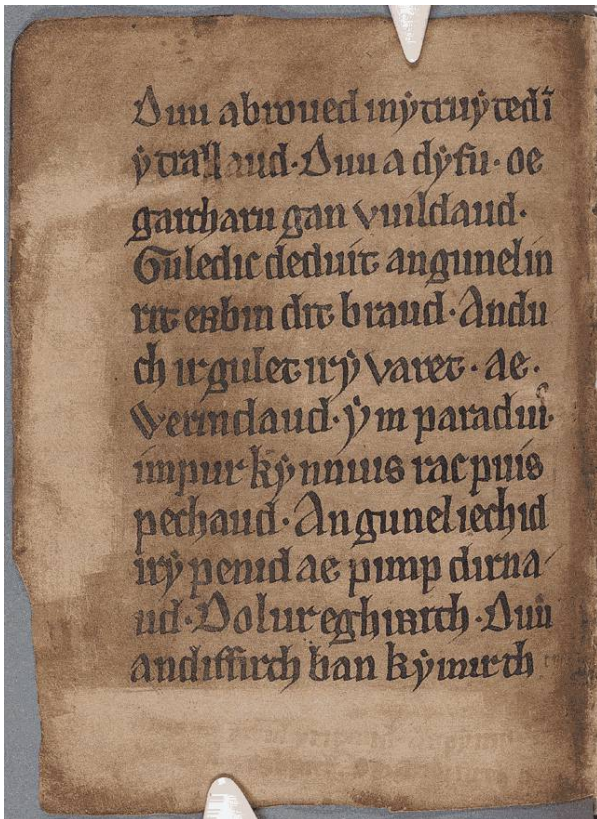 Duu abroued inẏ truẏ tedi
ẏ trallaud · Duu a dẏfu · oe
garcharu gan vuildaud ·
Guledic deduit angunelin
rit erbin dit braud · Andu
ch ir gulet irẏ varet · ae ·
Werindaud · ẏm paradui
impur kẏnnuis rac puis
pechaud · An gunel iechid
irẏ penid ae pimp dirna
ud · Dolur eghirith · Duu
andiffirth ban kẏmirth